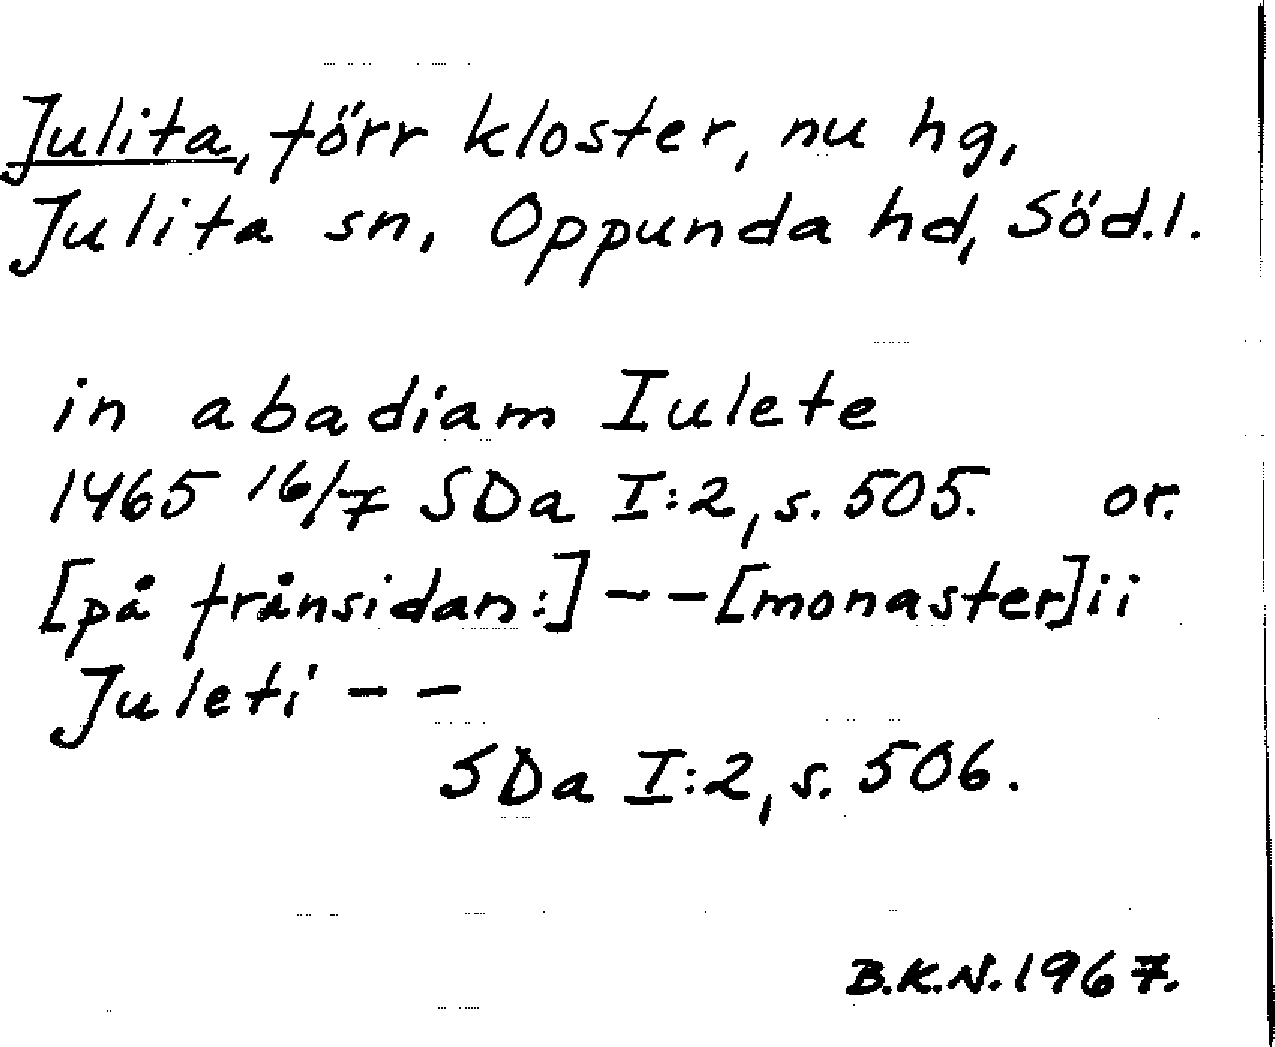 Julita, förr kloster, nu hg,
Julita sn, Oppunda hd, Söd.l.
in abadiam Iulete
1465 16/7 SDa I:2, s. 505. or.
[på frånsidan:] -- [monaster]ii
Juleti --
SDa I:2, s. 506.
B.K.N. 1967.